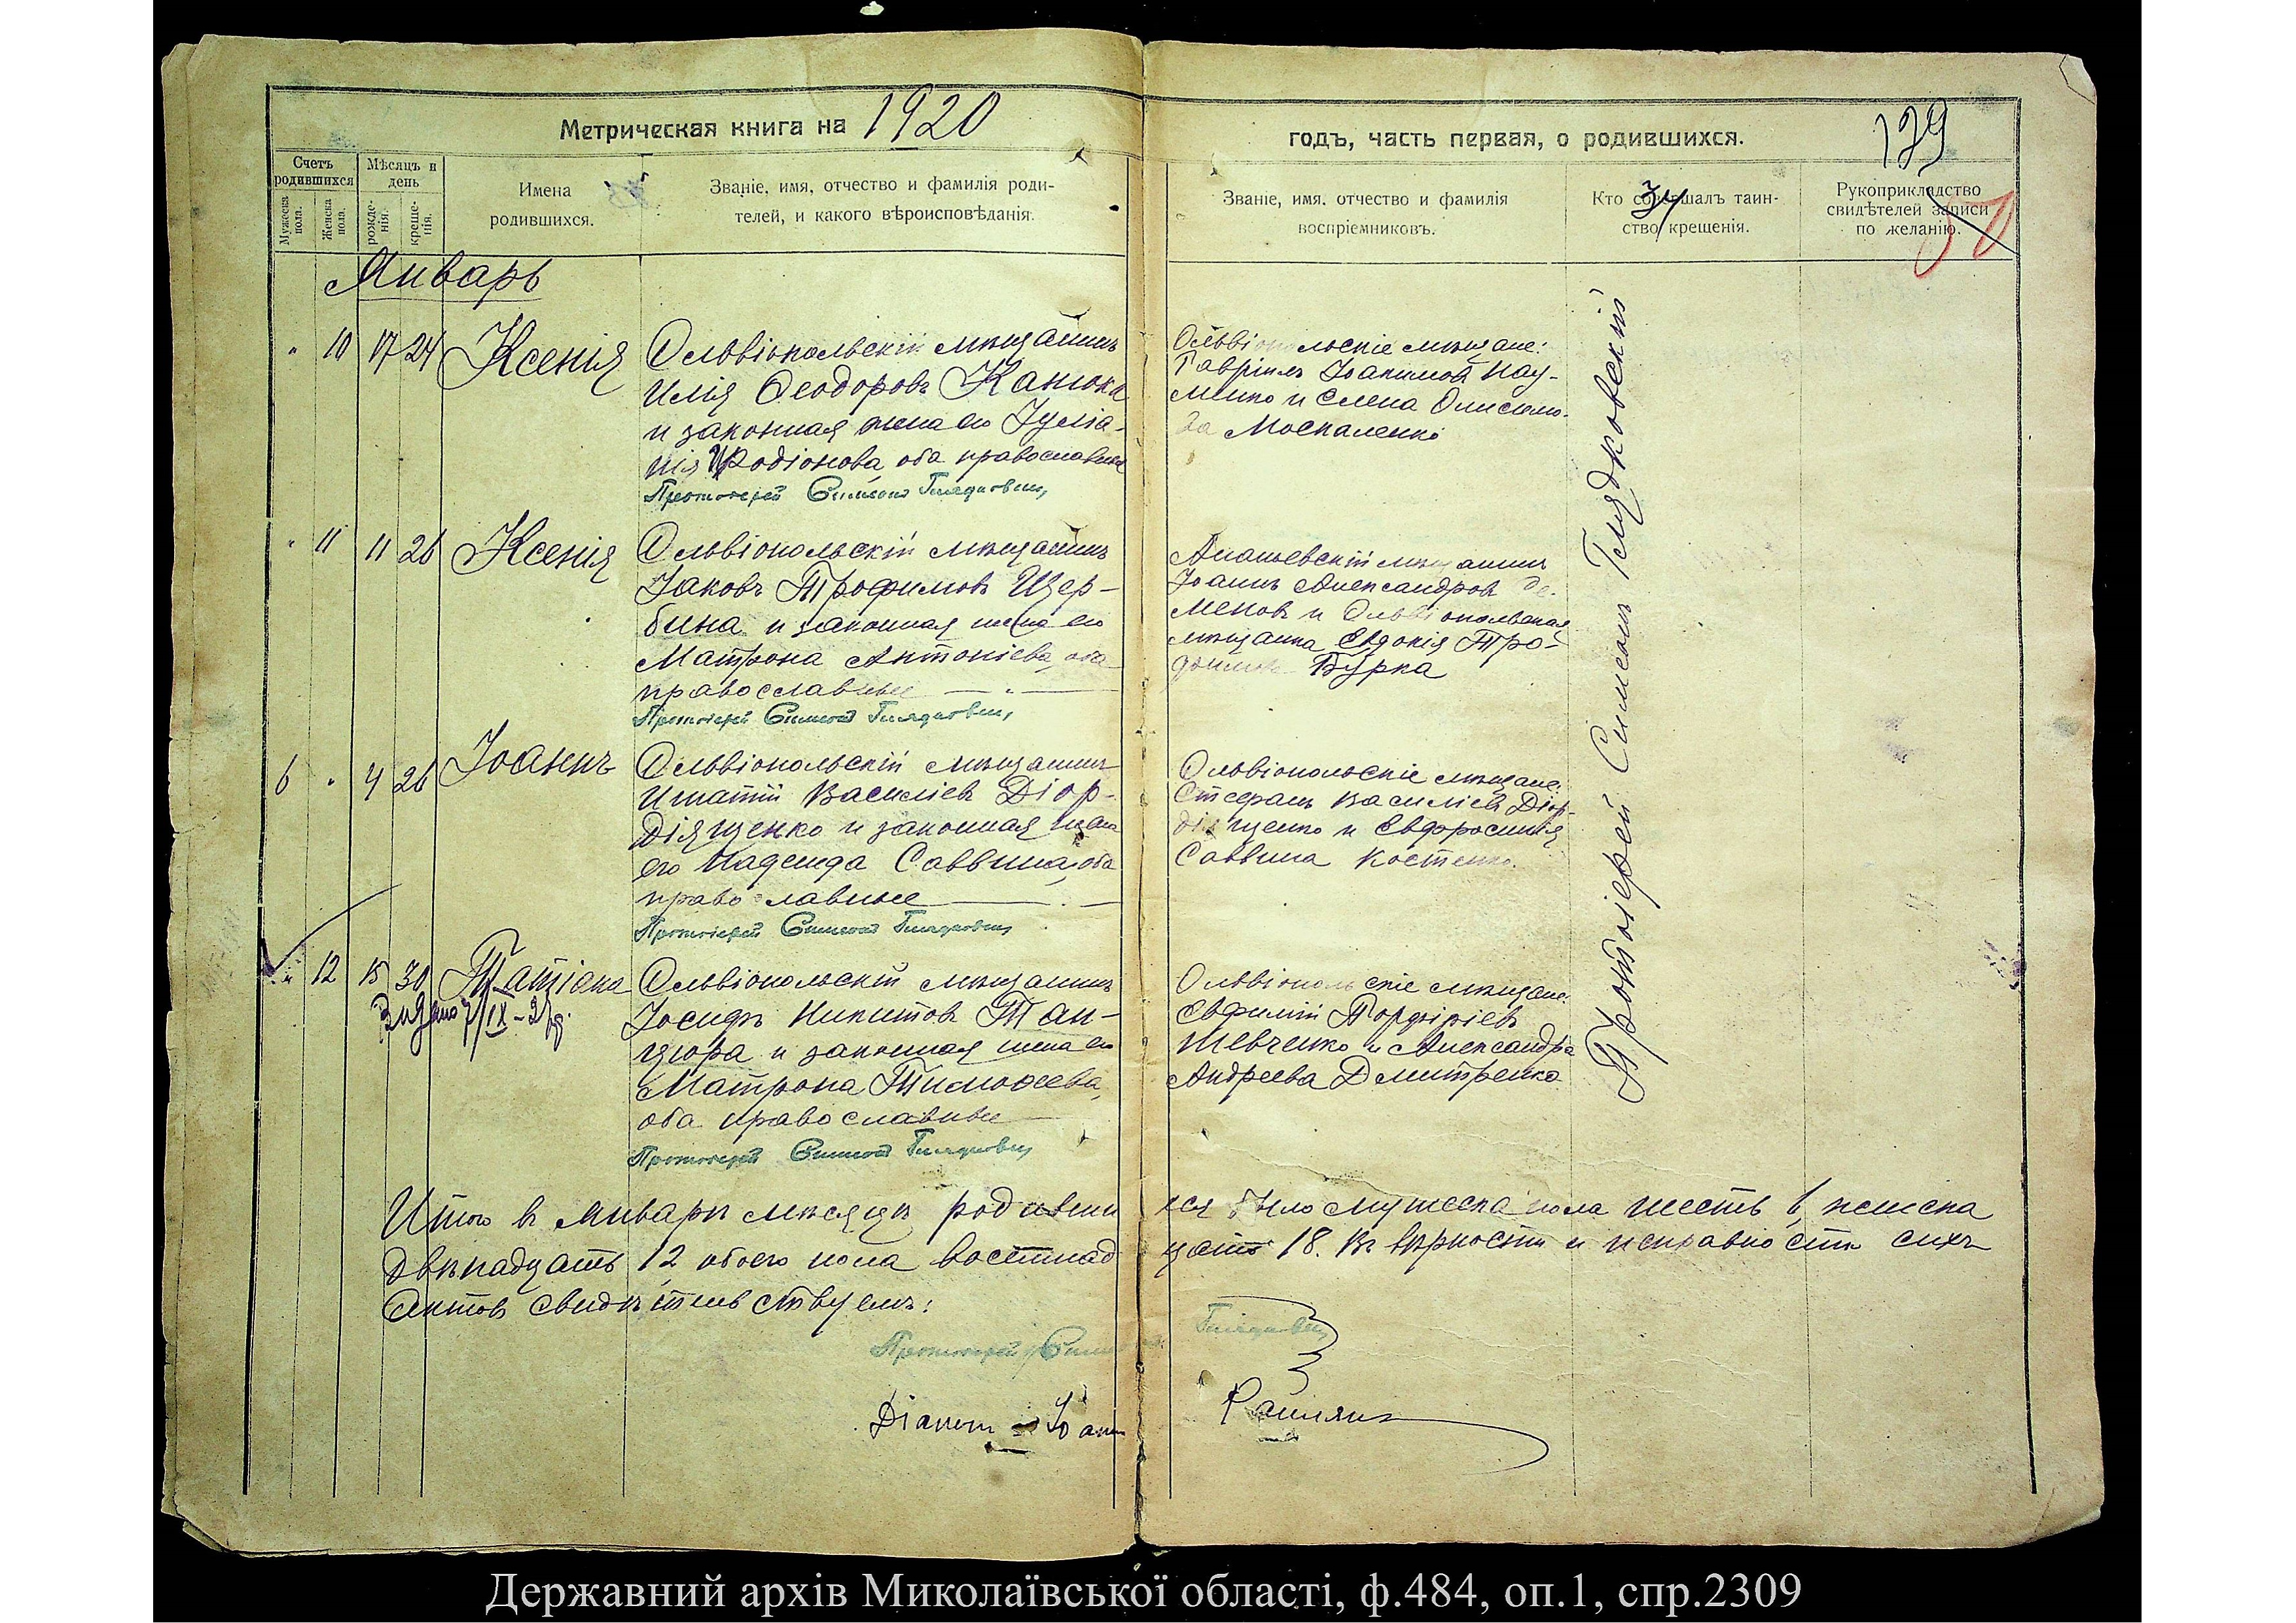 Метрическая книга на 1920
годъ, часть первая, о родившихся.
129
34
50
Счетъ родившихся
Мужеска пола.
Женска пола.
Мѣсяцъ и день
рожде-нія.
креще-нія.
Имена
родившихся.
Званіе, имя, отчество и фамилія роди-
телей, и какого вѣроисповѣданія.
Званіе, имя, отчество и фамилія
воспріемниковъ.
Кто совершалъ таин-
ство крещенія.
Рукоприкладство
свидѣтелей записи
по желанію.
Январь
" 10 17 24 Ксенія
Ольвіопольскій мѣщанинъ
Илія Ѳеодоровъ Канюка
и законная жена его Іуліа-
нія Родіонова, оба православные
Протоіерей Симеонъ Гляд­ковскій
Ольвіопольскіе мѣщане:
Гавріилъ Іоакимовъ Нау-
менко и Елена Онисимо-
ва Москаленко
" 11 11 26 Ксенія
Ольвіопольскій мѣщанинъ
Іаковъ Трофимовъ Щер-
бина и законная жена его
Матрона Антоніева, оба
православные
Протоіерей Симеонъ Глядковскій
Ананьевскій мѣщанинъ
Іоаннъ Александровъ
меновъ и Ольвіопольская
мѣщанка Евдокія Тро-
фимова Бурка
6 " 4 26 Іоаннъ
Ольвіопольскій мѣщанинъ
Игнатій Василіевъ Діор-
діященко и законная жена
его Надежда Саввина, оба
православные
Протоіерей Симеонъ Глядковскій
Ольвіопольскіе мѣщане:
Стефанъ Василіевъ Діор-
діященко и Евфросинія
Саввина Костенко.
" 12 15 30 Татіана
Видано 7/IX-27 р.
Ольвіопольскій мѣщанинъ
Іосифъ Никитовъ Тан-
цюра и законная жена его
Матрона Тимоѳеева,
оба православные
Протоіерей Симеонъ Глядковскій
Ольвіопольскіе мѣщане:
Евфимій Порфиріевъ
Шевченко и Александра
Андреева Дмитренко
Протоіерей Симеонъ Глядковскій
Итого въ Январѣ мѣсяцѣ родившихся было мужеска пола шесть 6, женска
двѣнадцать 12 обоего пола восемнадцать 18. Въ вѣрности и исправности сихъ
актовъ свидѣтельствуемъ:
Протоіерей Симеонъ Глядковскій
Діаконъ Іоаннъ
Державний архів Миколаївської області, ф.484, оп.1, спр.2309